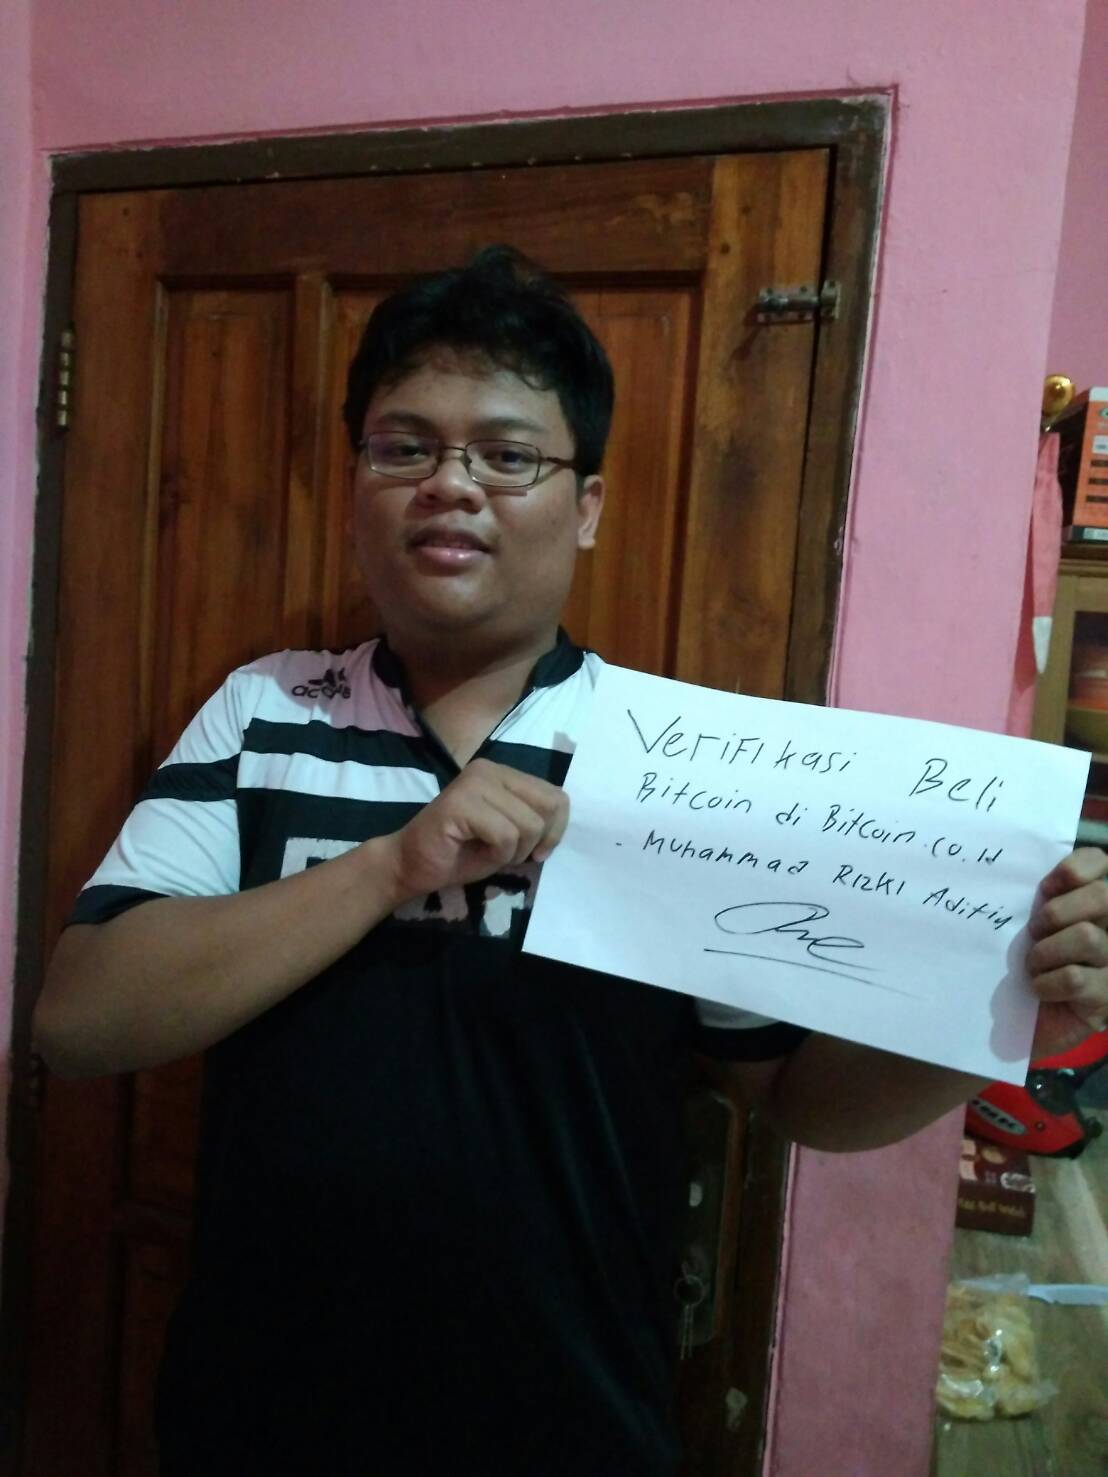 adidas
Verifikasi Beli
Bitcoin di Bitcoin.co.id
- Muhammad Rizki Aditiy